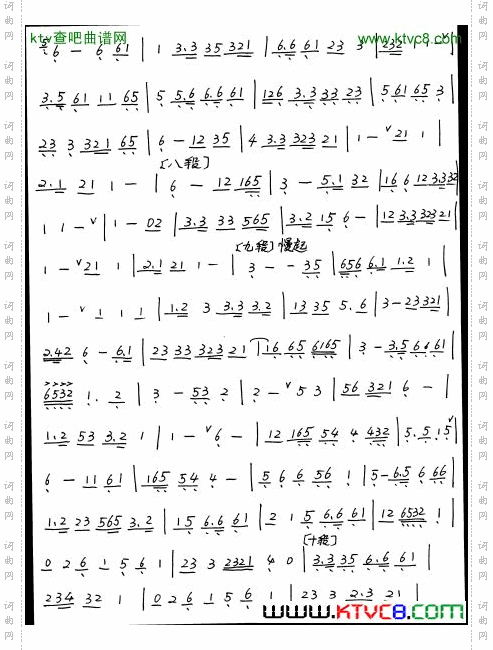 ktv查吧曲谱网 www.ktvc8.com
6 - 6 61 | 1 3.3 35 321 | 6.6 61 23 3 | 232 1 1 ∨ |
3.5 61 11 65 | 5 5.6 6.6 61 | 126 3.3 33 23 | 5 61 65 3 |
23 3 321 65 | 6 - 12 35 | 4 3.3 323 21 | 1 - ∨21 1 |
[八段]
2.1 21 1 - | 6 - 12 165 | 3 - 5.1 32 | 16 6 12 3.332 |
1 1 - ∨ | 1 - 02 | 3.3 33 565 | 3.2 15 6 - | 12 3.3 323 21 |
[九段] 慢起
1 - ∨21 1 | 2.1 21 1 - | 3 - - 35 | 656 6.1 1.2 1 |
1 - ∨ 1 1 1 | 1.2 3 3.3 3.2 | 13 35 5. 6 | 3 - 23321 |
2.42 6 - 6.1 | 23 33 323 21 | 16 65 6165 | 3 - 3.5 66 61 |
>>>>
6532 1. 2 | 3 - 53 2 | 2 - ∨ 5 3 | 56 321 6 - |
1.2 53 3.2 1 | 1 - ∨6 - | 12 165 54 4 432 | 5. 5. 15 ∨ |
6 - 11 61 | 165 54 4 - | 5 6 6 56 1 | 5 - 6.5 6 66 |
1.2 23 565 3.2 | 15 6.6 61 | 2 1 5 6.6 61 | 12 6532 1 |
[十段]
0 2 6 1 5 6 1 | 23 3 2321 4 0 | 3.3 35 6.6 61 |
234 32 1 | 0 2 6 1 5 6 1 | 23 3 2.3 21 |
WWW.KTVC8.COM
词曲网